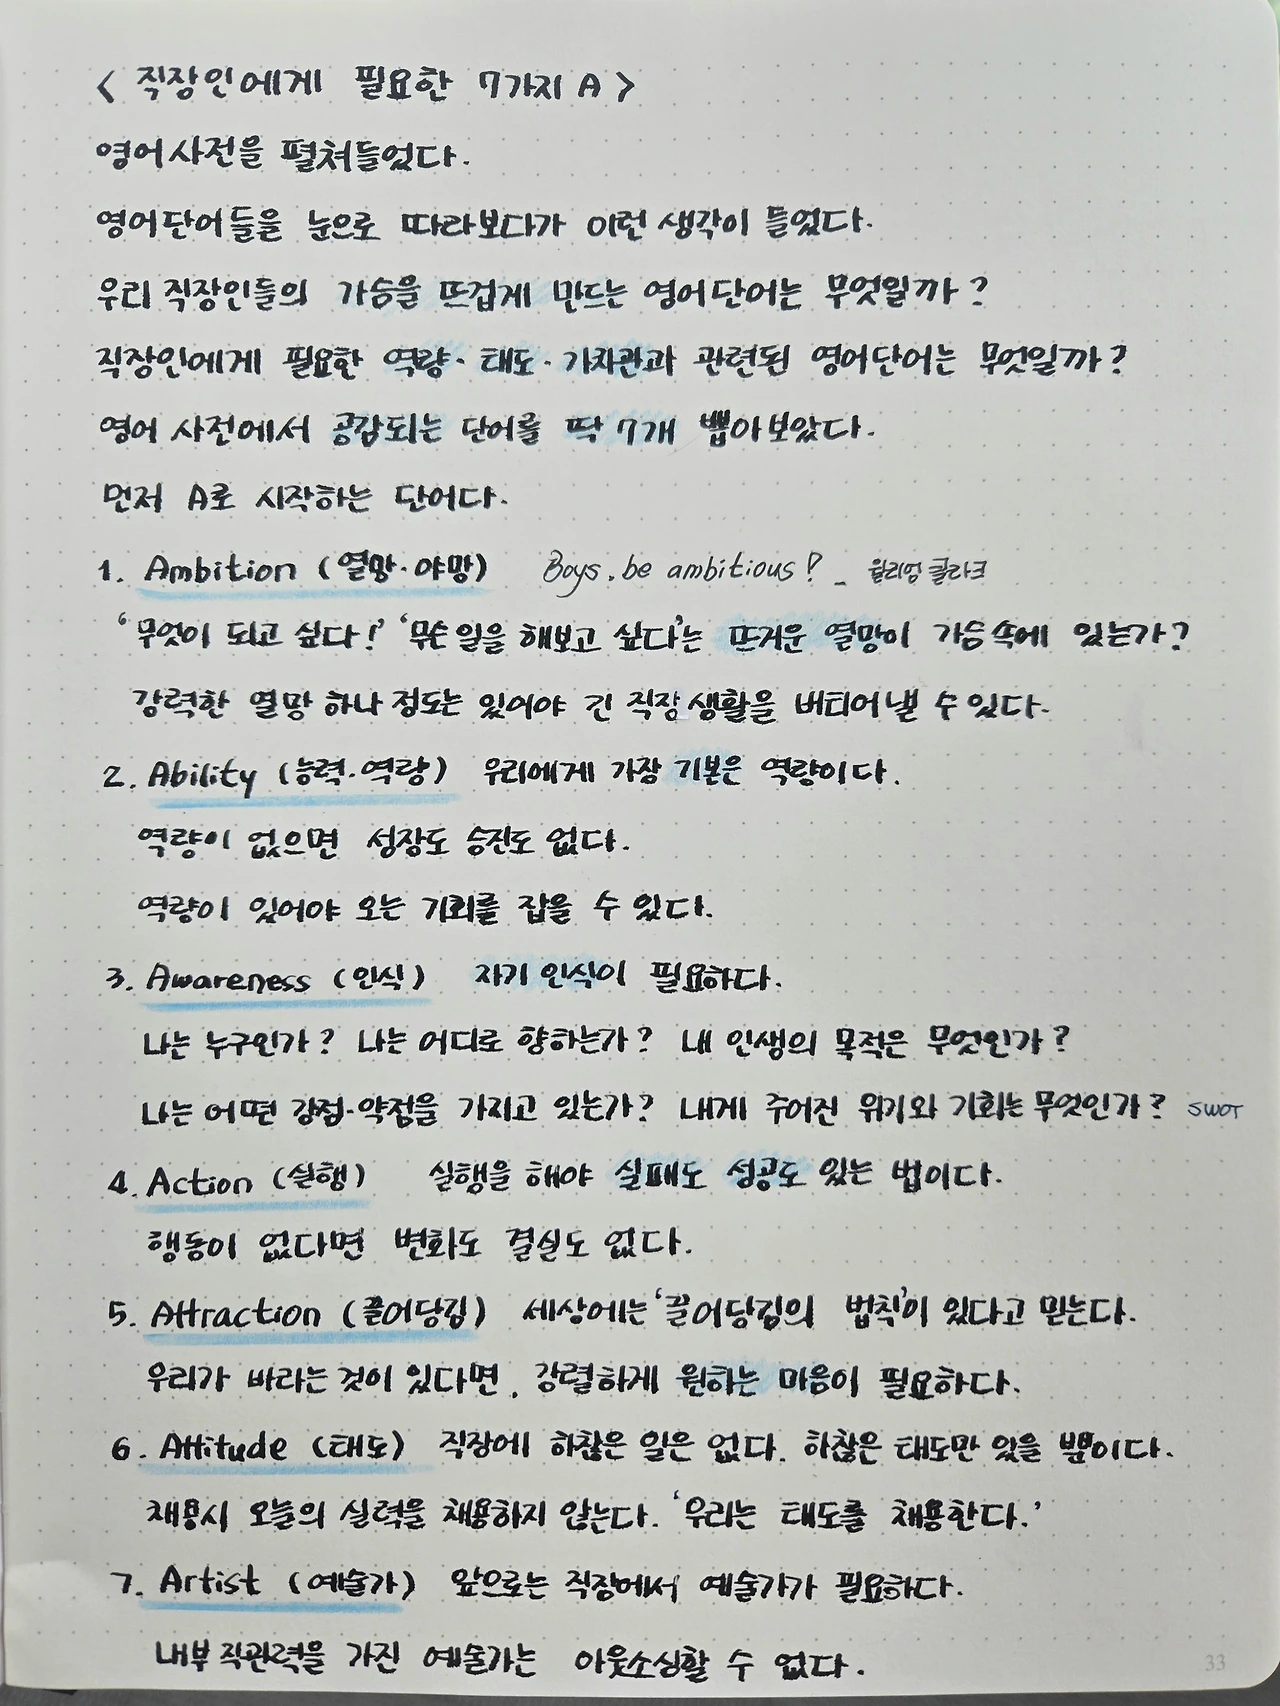 < 직장인에게 필요한 7가지 A >
영어사전을 펼쳐들었다.
영어단어들을 눈으로 따라보다가 이런 생각이 들었다.
우리 직장인들의 가슴을 뜨겁게 만드는 영어단어는 무엇일까?
직장인에게 필요한 역량·태도·가치관과 관련된 영어단어는 무엇일까?
영어 사전에서 공감되는 단어를 딱 7개 뽑아보았다.
먼저 A로 시작하는 단어다.
1. Ambition (열망·야망) Boys, be ambitious! - 윌리엄 클라크
'무엇이 되고 싶다!' '무슨 일을 해보고 싶다'는 뜨거운 열망이 가슴속에 있는가?
강력한 열망 하나 정도는 있어야 긴 직장 생활을 버티어낼 수 있다.
2. Ability (능력·역량) 우리에게 가장 기본은 역량이다.
역량이 없으면 성장도 승진도 없다.
역량이 있어야 오는 기회를 잡을 수 있다.
3. Awareness (인식) 자기 인식이 필요하다.
나는 누구인가? 나는 어디로 향하는가? 내 인생의 목적은 무엇인가?
나는 어떤 강점·약점을 가지고 있는가? 내게 주어진 위기와 기회는 무엇인가? SWOT
4. Action (실행) 실행을 해야 실패도 성공도 있는 법이다.
행동이 없다면 변화도 결실도 없다.
5. Attraction (끌어당김) 세상에는 '끌어당김의 법칙'이 있다고 믿는다.
우리가 바라는 것이 있다면, 강렬하게 원하는 마음이 필요하다.
6. Attitude (태도) 직장에 하찮은 일은 없다. 하찮은 태도만 있을 뿐이다.
채용시 오늘의 실력을 채용하지 않는다. '우리는 태도를 채용한다.'
7. Artist (예술가) 앞으로는 직장에서 예술가가 필요하다.
내부 직관력을 가진 예술가는 아웃소싱할 수 없다.
33